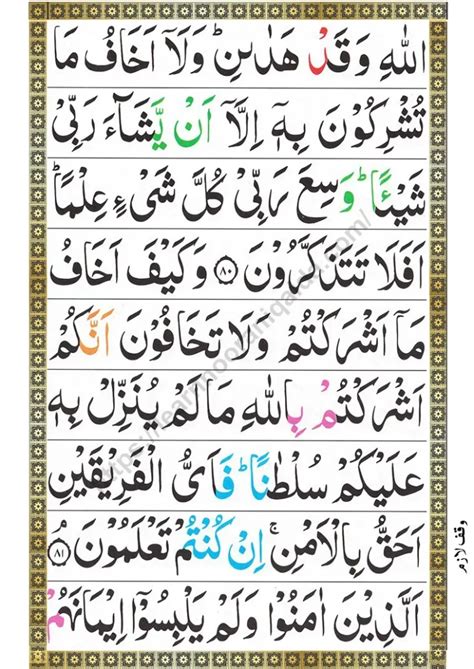 اللهِ وَقَدْ هَدٰىنِ ؕ وَلَاۤ اَخَافُ مَا
تُشْرِكُوْنَ بِهٖۤ اِلَّاۤ اَنْ يَّشَآءَ رَبِّىْ
شَيْـًٔا ؕ وَسِعَ رَبِّىْ كُلَّ شَىْءٍ عِلْمًا ؕ
اَفَلَا تَتَذَكَّرُوْنَ ﴿۸۰﴾ وَكَيْفَ اَخَافُ
مَاۤ اَشْرَكْتُمْ وَلَا تَخَافُوْنَ اَنَّكُمْ
اَشْرَكْتُمْ بِاللهِ مَا لَمْ يُنَزِّلْ بِهٖ
عَلَيْكُمْ سُلْطٰنًا ؕ فَاَىُّ الْفَرِيْقَيْنِ
اَحَقُّ بِالْاَمْنِ ۚ اِنْ كُنْتُمْ تَعْلَمُوْنَ ﴿۸۱﴾
اَلَّذِيْنَ اٰمَنُوْا وَلَمْ يَلْبِسُوْۤا اِيْمَانَهُمْ
وقف لازم